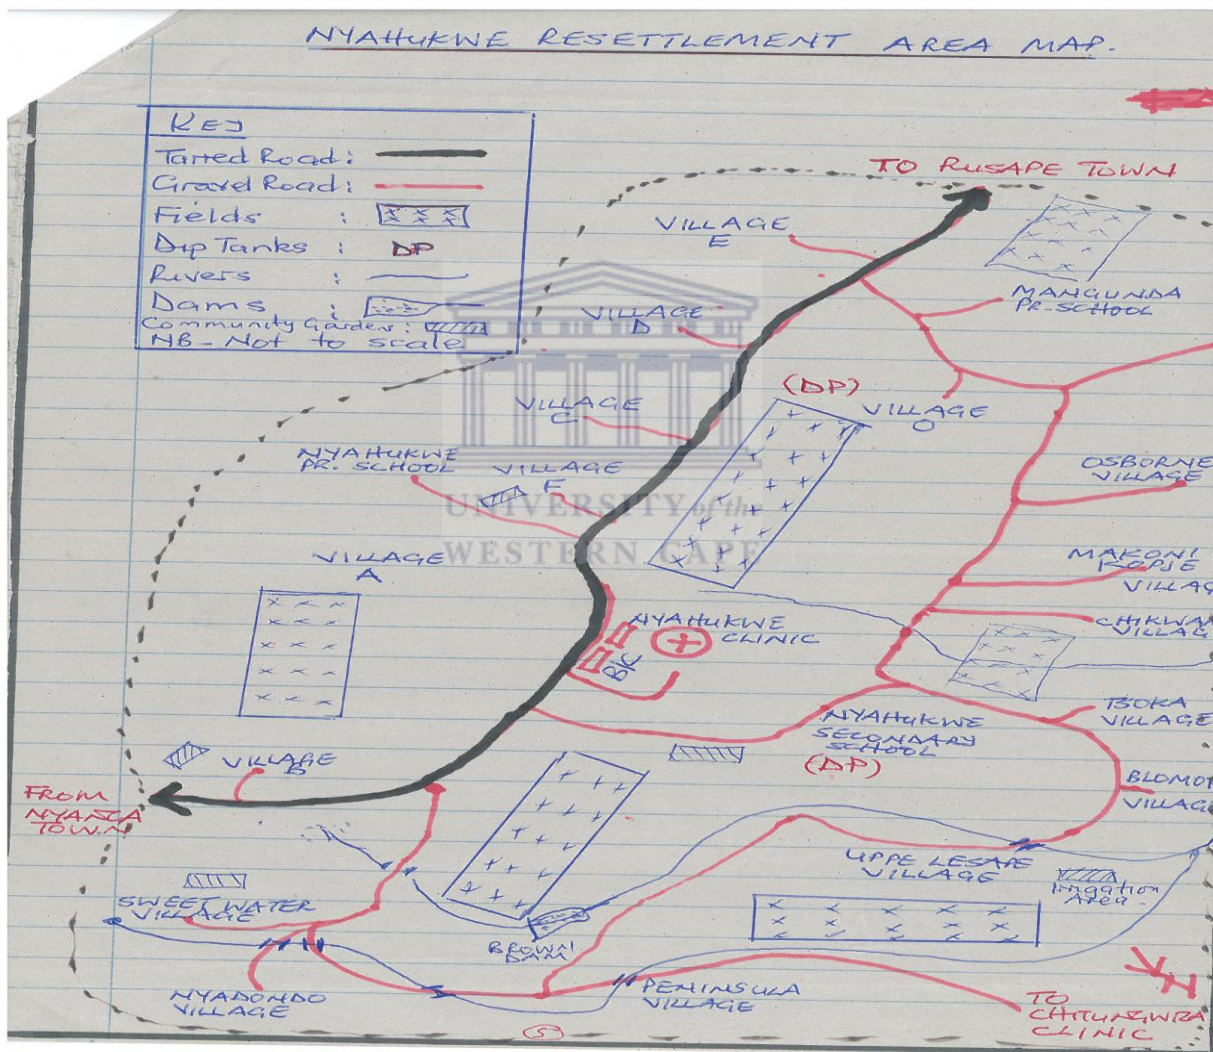 NYAHUKWE RESETTLEMENT AREA MAP.
KEY
Tarred Road:
Gravel Road:
Fields :
Dip Tanks : DP
Rivers :
Dams :
Community Garden:
NB - Not to scale
TO RUSAPE TOWN
VILLAGE
E
MANGUNDA
PR. SCHOOL
VILLAGE
D
(DP)
VILLAGE
C
VILLAGE
O
NYAHUKWE
PR. SCHOOL
VILLAGE
F
OSBORNE
VILLAGE
UNIVERSITY of the
WESTERN CAPE
VILLAGE
A
MAKONI
KOPJE
VILLAG
CHIKWA
VILLAG
NYAHUKWE
CLINIC
B/C
NYAHUKWE
SECONDARY
SCHOOL
(DP)
TSOKA
VILLAGE
VILLAGE
B
BLOMO
VILLAGE
FROM
NYANGA
TOWN
UPPE LESAPE
VILLAGE
Irrigation
Area
SWEET WATER
VILLAGE
BROWN
DAM
NYADONDO
VILLAGE
PENINSULA
VILLAGE
TO
CHITUNGWIZA
CLINIC
5